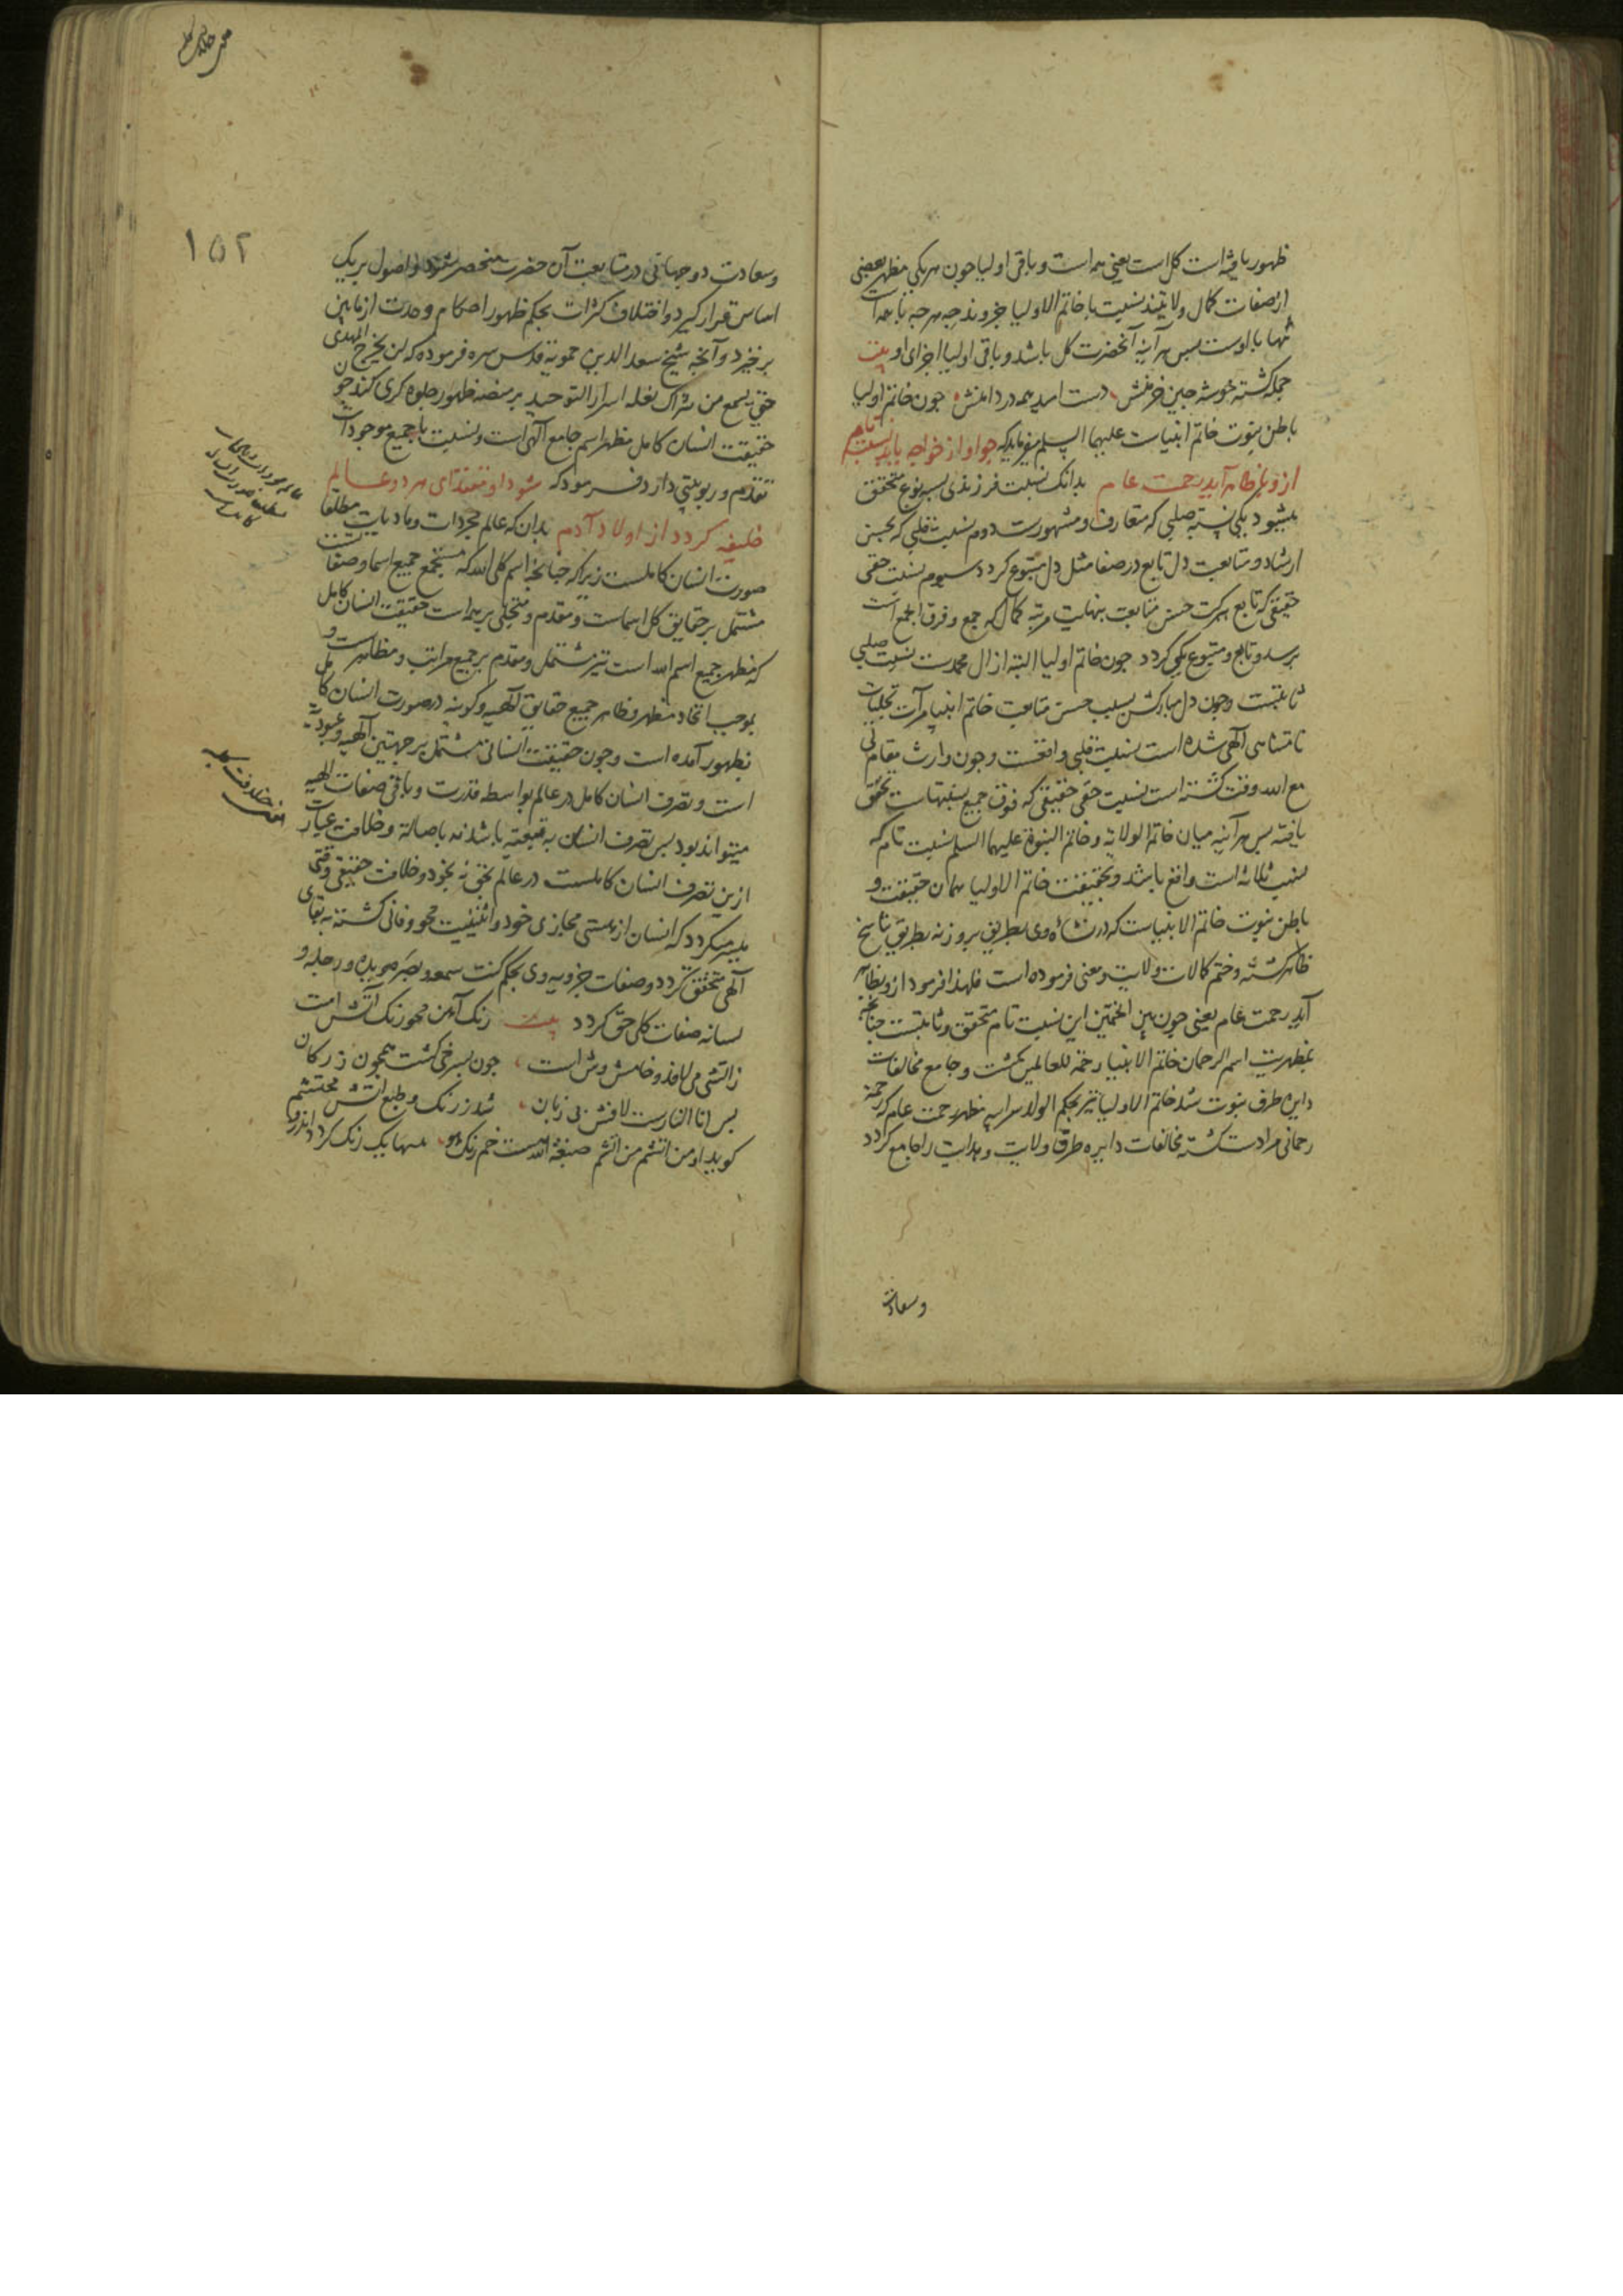 ظهور یافته است کل است یعنی همه است و باقی اولیا چون هر یکی مظهر بعضی
از صفات کمال ولایتند نسبت با خاتم الاولیا جزوند چه هر چه با همه است
تنها با اوست پس هر آینه آنحضرت کل باشد و باقی اولیا اجزای او بیت
جمله گشته خوشه چین خرمنش دست امید همه در دامنش چون خاتم اولیا
باطن نبوت خاتم انبیاست علیهما السلم میفرماید که چو او از خواجه یابد نسبت تام
ازو با ظاهر آید رحمت عام بدانک نسبت فرزندی بسه نوع متحقق
میشود یکی نسبت صلبی که متعارف و مشهورست دوم نسبت قلبی که بحسن
ارشاد و متابعت دل تابع در صفا مثل دل متبوع گردد سیوم نسبت حقی
حقیقی که تابع ببرکت حسن متابعت بنهایت مرتبه کمال که جمع و فرق الجمع است
برسد و تابع و متبوع یکی گردد چون خاتم اولیا البته از ال محمدست نسبت صلبی
ثابتست و چون دل مبارکش بسبب حسن متابعت خاتم انبیا مرآت تجلیات
نامتناهی الهی شده است نسبت قلبی واقعست و چون وارث مقام لی
مع الله وقت گشته است نسبت حقی حقیقی که فوق جمیع نسبتهاست تحقق
یافته پس هر آینه میان خاتم الولایة و خاتم النبوة علیهما السلم نسبت تام که
نسبت ثلاثه است واقع باشد و بحقیقت خاتم الاولیا همان حقیقت و
باطن نبوت خاتم الانبیاست که در نشاه وی بطریق بروز نه بطریق تناسخ
ظاهر گشته و ختم کمالات ولایت و معنی فرموده است فلهذا فرمود ازو بظاهر
آید رحمت عام یعنی چون بین الختمین این نسبت تام متحقق و ثابتست چنانچه
بمظهریت اسم الرحمان خاتم الانبیا رحمة للعالمین گشت و جامع مخالفات
دایره طرف نبوت شد خاتم الاولیا نیز بحکم الولد سر ابیه مظهر رحمت عام که رحمة
رحمانی مرادست گشته مخالفات دایره طرف ولایت و هدایت را جامع گردد
و سعادت
۱۵۲
و سعادت دو جهانی در متابعت آن حضرت منحصر شود و اصول بر یک
اساس قرار گیرد و اختلاف کثرات بحکم ظهور احکام وحدت از مابین
برخیزد و آنچه شیخ سعد الدین حمویه قدس سره فرموده که لن یخرج المهدی
حتی یسمع من شراک نعله اسرار التوحید بر منصه ظهور جلوه گری کند چون
حقیقت انسان کامل مظهر اسم جامع آلهی است و نسبت با جمیع موجودات
تقدم و ربوبیتی دارد فرمود که شود او مقتدای هر دو عالم
خلیفه گردد از اولاد آدم بدان که عالم مجردات و مادیات مطلقا
صورت انسان کاملست زیرا که چنانچه اسم کلی الله که مستجمع جمیع اسما و صفاتست
مشتمل بر حقایق کل اسماست و مقدم و متجلی بر همه است حقیقت انسان کامل
که مظهر جمیع اسم الله است نیز مشتمل و مقدم بر جمیع مراتب و مظاهرست و
بموجب اتحاد مظهر و ظاهر جمیع حقایق آلهیه و کونیه در صورت انسان کامل
بظهور آمده است و چون حقیقت انسانی مشتمل بر جهتین آلهیه و عبودیة
است و تصرف انسان کامل در عالم بواسطه قدرت و باقی صفات الهیه
میتواند بود پس تصرف انسان به تبعیة باشد نه باصالة و خلافت عبارت
ازین تصرف انسان کاملست در عالم بحق نه بخود و خلافت حقیقی وقتی
میسر میگردد که انسان از هستی مجازی خود و اثنینیت محو و فانی گشته به بقای
آلهی متحقق گردد و صفات جزویه وی بحکم کنت سمعه و بصره و یده و رجله و
لسانه صفات کلی حق گردد بیت رنگ آهن محو رنگ آتش است
ز آتشی می لافد و خامش وش است چون بسرخی گشت همچون زر کان
پس انا النارست لافش بی زبان شد ز رنگ و طبع آتش محتشم
گوید او من آتشم من آتشم صبغة الله هست خم رنگ هو پیسها یک رنگ گردد اندرو